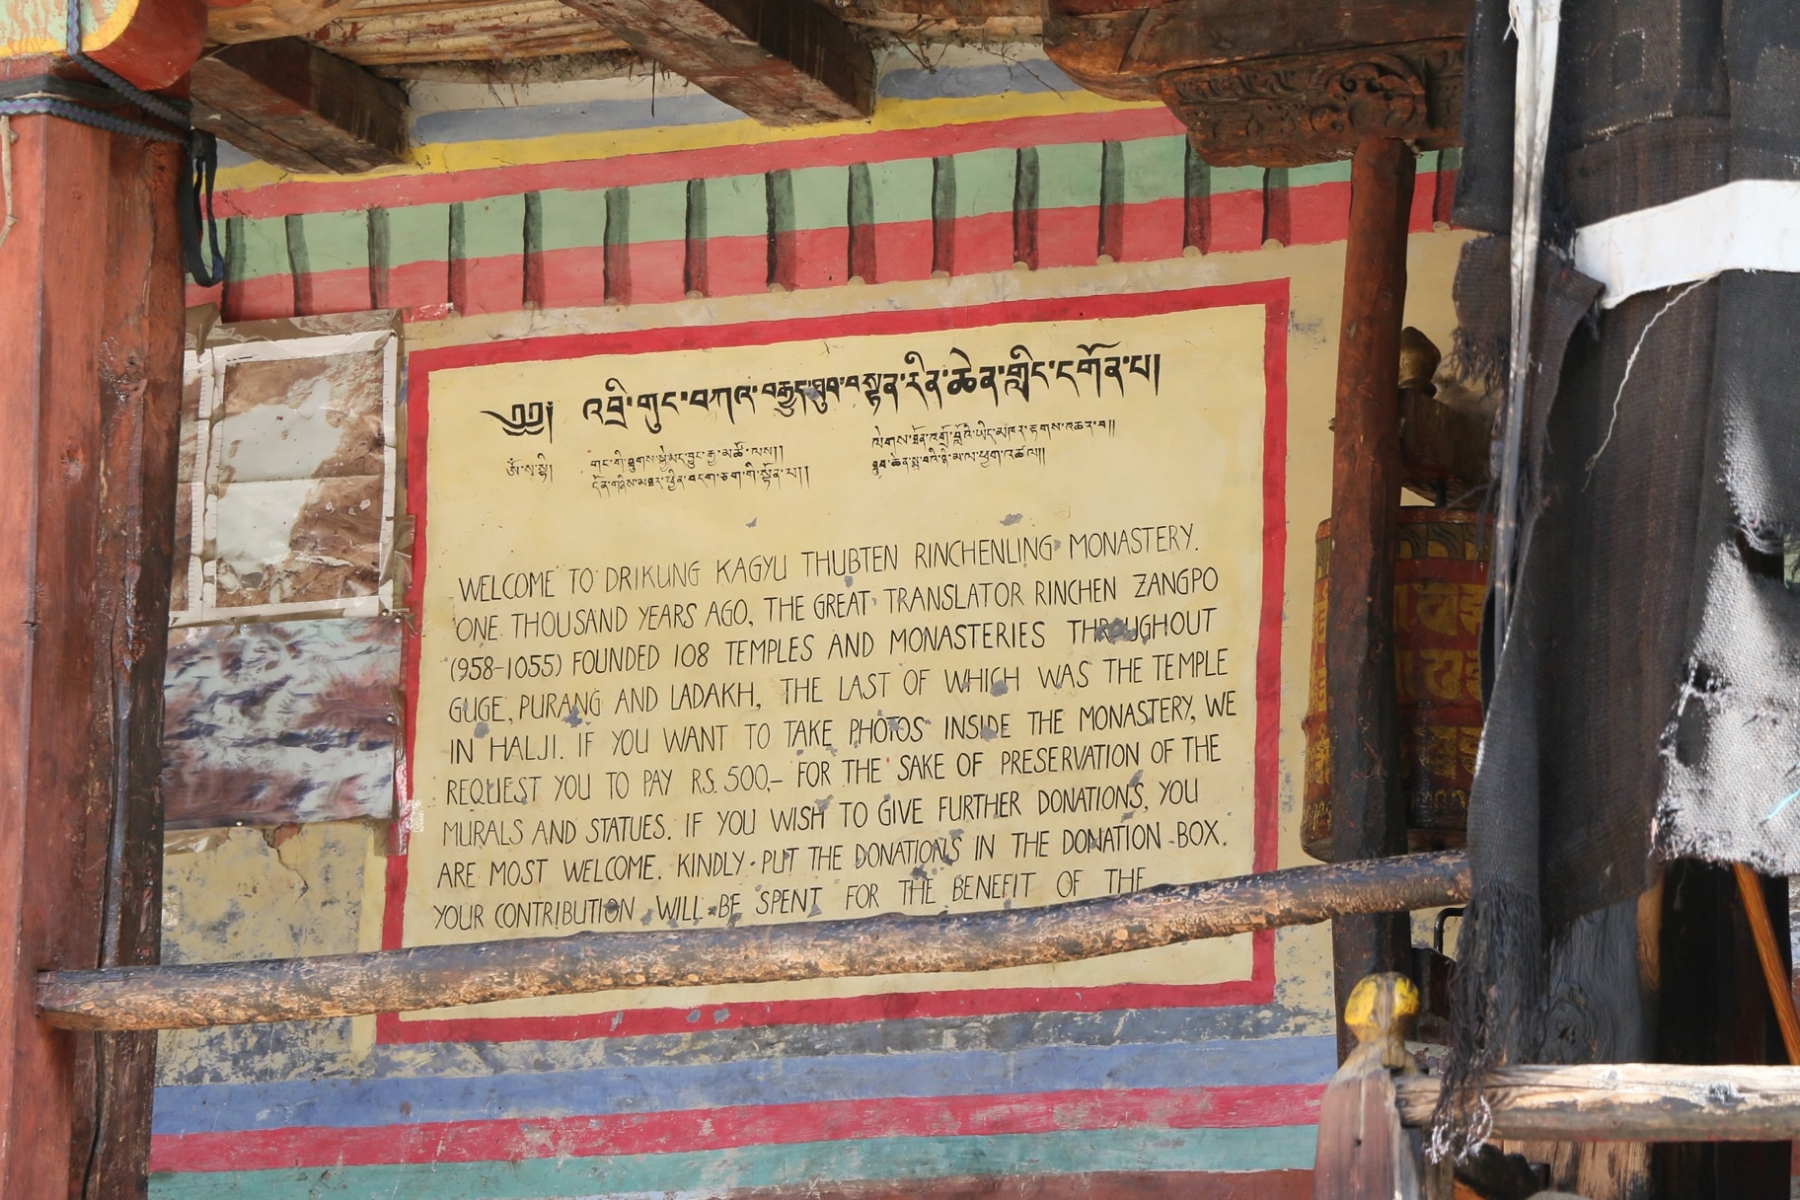 ༄༅། འབྲི་གུང་བཀའ་བརྒྱུད་ཐུབ་བསྟན་རིན་ཆེན་གླིང་དགོན་པ།
ཨོཾ་སྭ་སྟི།
WELCOME TO DRIKUNG KAGYU THUBTEN RINCHENLING MONASTERY.
ONE THOUSAND YEARS AGO, THE GREAT TRANSLATOR RINCHEN ZANGPO
(958-1055) FOUNDED 108 TEMPLES AND MONASTERIES THROUGHOUT
GUGE, PURANG AND LADAKH, THE LAST OF WHICH WAS THE TEMPLE
IN HALJI. IF YOU WANT TO TAKE PHOTOS INSIDE THE MONASTERY, WE
REQUEST YOU TO PAY RS. 500,- FOR THE SAKE OF PRESERVATION OF THE
MURALS AND STATUES. IF YOU WISH TO GIVE FURTHER DONATIONS, YOU
ARE MOST WELCOME. KINDLY PUT THE DONATIONS IN THE DONATION BOX.
YOUR CONTRIBUTION WILL BE SPENT FOR THE BENEFIT OF THE